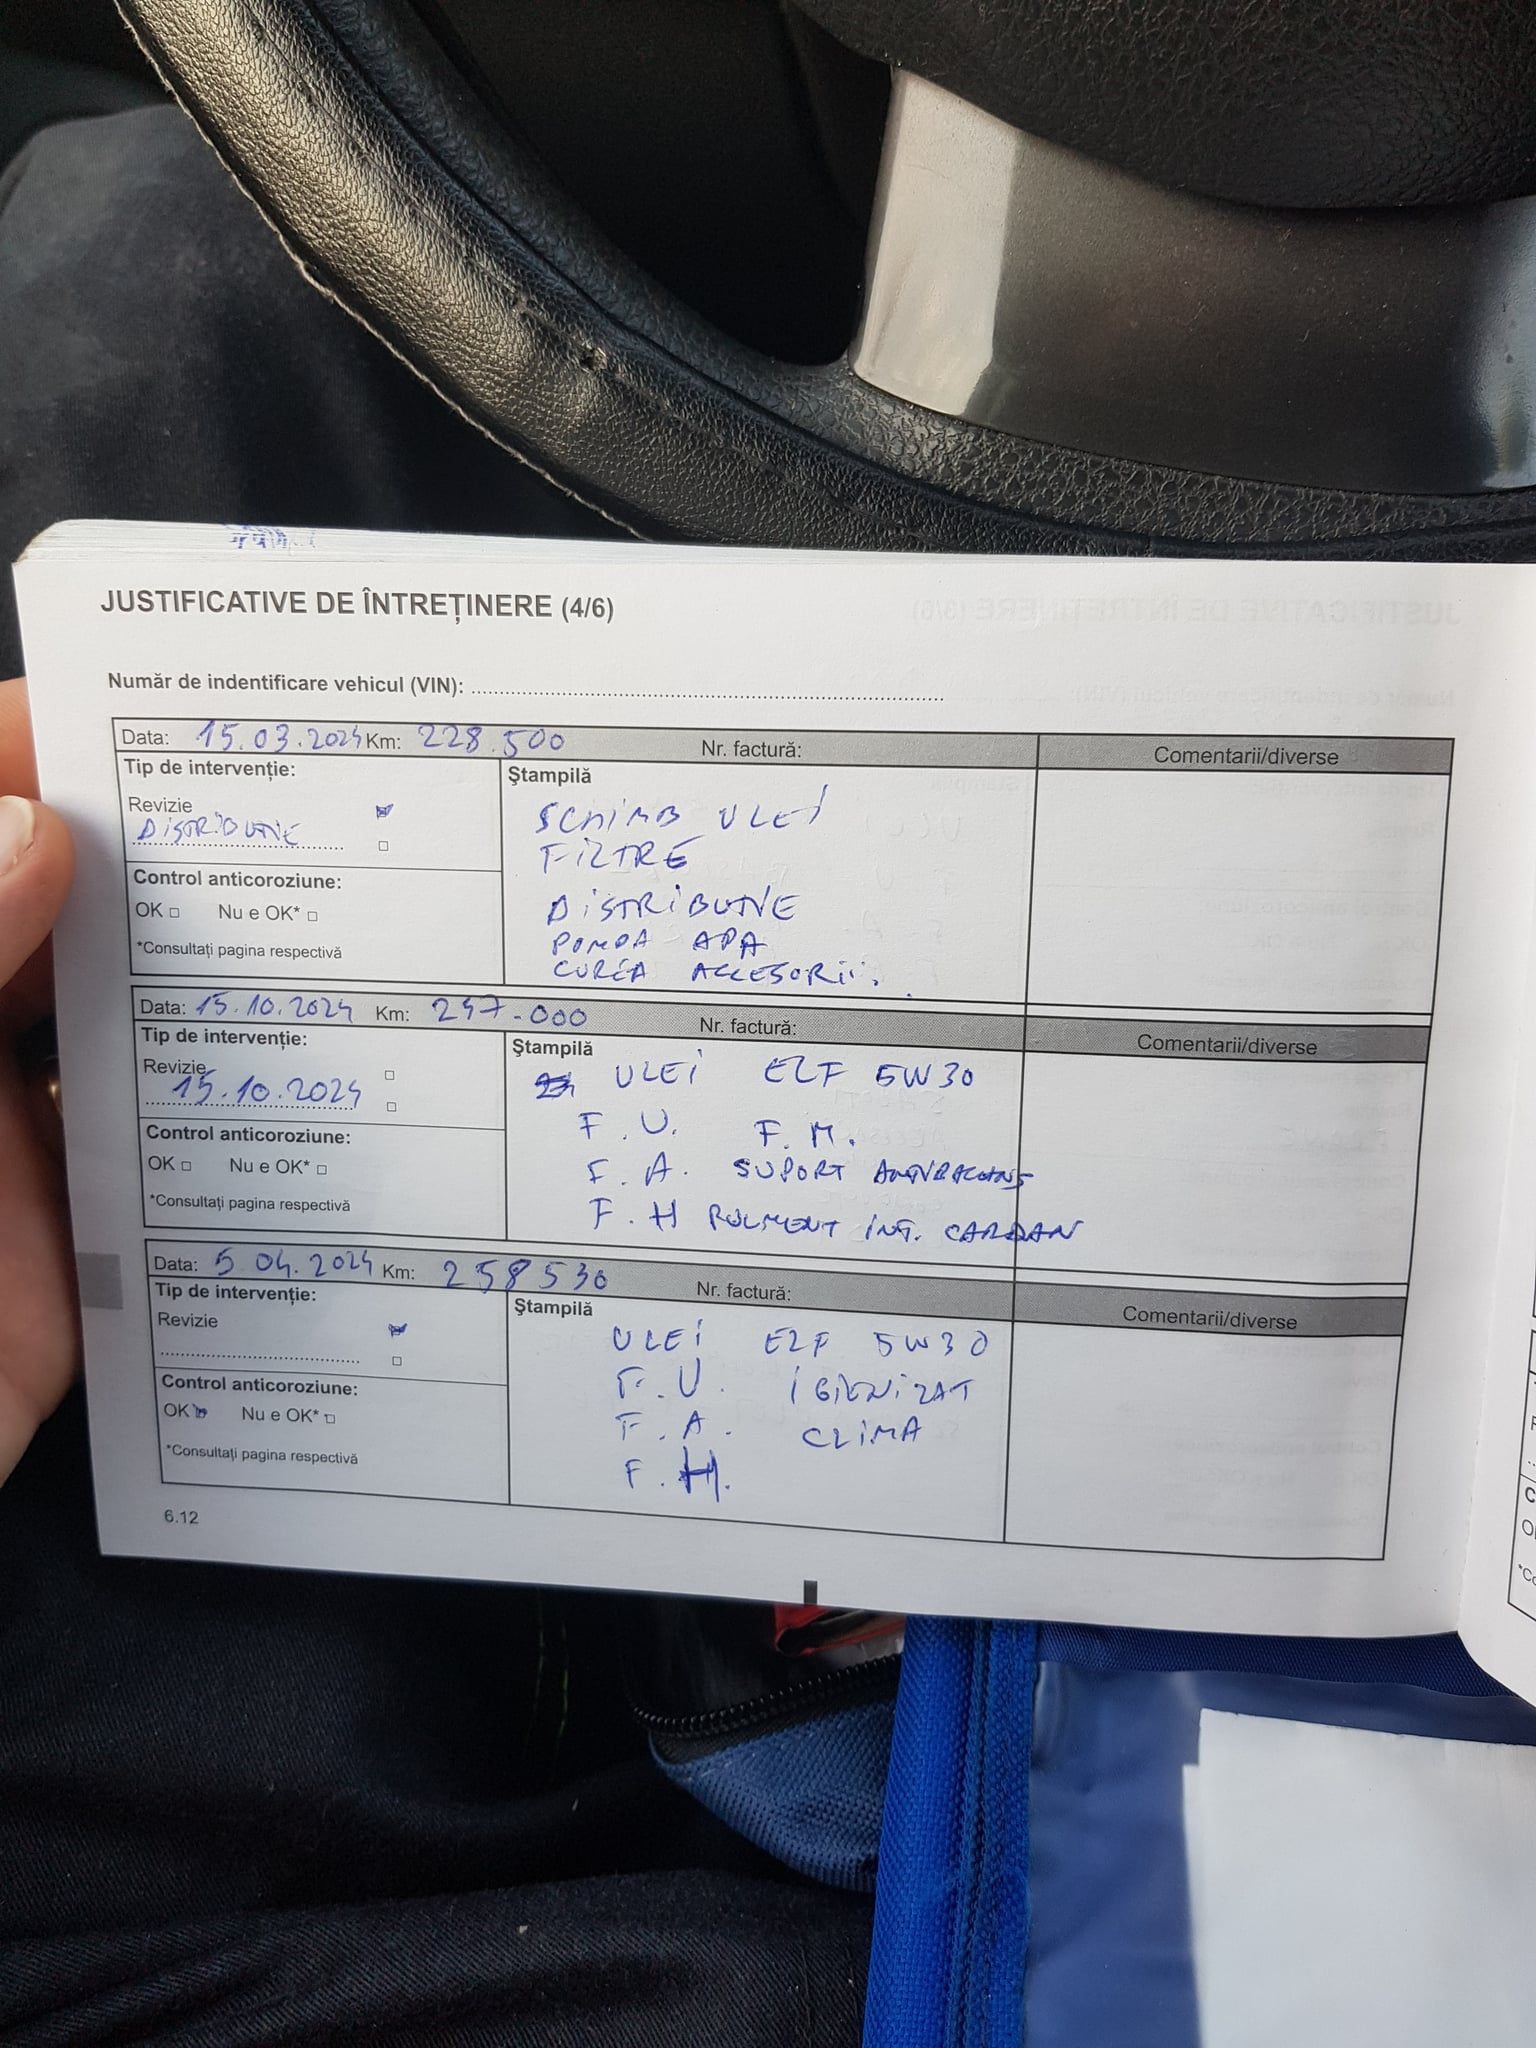 JUSTIFICATIVE DE ÎNTREȚINERE (4/6)
Număr de indentificare vehicul (VIN):
Data: 15.03.2024 Km: 228.500 Nr. factură: Comentarii/diverse
Tip de intervenție:
Ştampilă
Revizie
DISTRIBUTIE
SCHIMB ULEI
FILTRE
DISTRIBUTIE
POMPA APA
CUREA ACCESORII.
Control anticoroziune:
OK Nu e OK*
*Consultați pagina respectivă
Data: 15.10.2024 Km: 247.000 Nr. factură: Comentarii/diverse
Tip de intervenție:
Ştampilă
Revizie
15.10.2024
ULEI ELF 5W30
F.U. F.M.
F.A. SUPORT
F.H RULMENT INT. CARDAN
Control anticoroziune:
OK Nu e OK*
*Consultați pagina respectivă
Data: 5 04.2024 Km: 258530 Nr. factură: Comentarii/diverse
Tip de intervenție:
Ştampilă
Revizie
ULEI ELF 5W30
F.U. IGIENIZAT
F.A. CLIMA
F.H.
Control anticoroziune:
OK Nu e OK*
*Consultați pagina respectivă
6.12